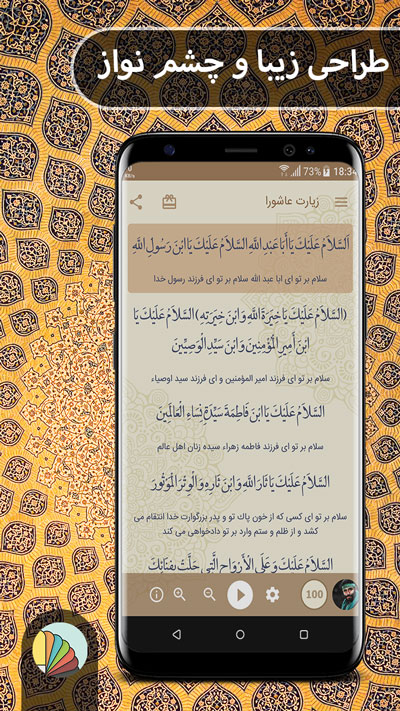 طراحی زیبا و چشم نواز
73% 18:34
زیارت عاشورا
اَلسَّلاَمُ عَلَيْكَ يَا أَبَا عَبْدِ اللَّهِ اَلسَّلاَمُ عَلَيْكَ يَا ابْنَ رَسُولِ اللَّهِ
سلام بر تو ای ابا عبد الله سلام بر تو ای فرزند رسول خدا
(اَلسَّلاَمُ عَلَيْكَ يَا خِيَرَةَ اللَّهِ وَ ابْنَ خِيَرَتِهِ) اَلسَّلاَمُ عَلَيْكَ يَا
ابْنَ أَمِيرِ الْمُؤْمِنِينَ وَ ابْنَ سَيِّدِ الْوَصِيِّينَ
سلام بر تو ای فرزند امیر المؤمنین و ای فرزند سید اوصیاء
اَلسَّلاَمُ عَلَيْكَ يَا ابْنَ فَاطِمَةَ سَيِّدَةِ نِسَاءِ الْعَالَمِينَ
سلام بر تو ای فرزند فاطمه زهراء سیده زنان اهل عالم
اَلسَّلاَمُ عَلَيْكَ يَا ثَارَ اللَّهِ وَ ابْنَ ثَارِهِ وَ الْوِتْرَ الْمَوْتُورَ
سلام بر تو ای کسی که از خون پاك تو و پدر بزرگوارت خدا انتقام می
کشد و از ظلم و ستم وارد بر تو دادخواهی می کند
اَلسَّلاَمُ عَلَيْكَ وَ عَلَى الْأَرْوَاحِ الَّتِي حَلَّتْ بِفِنَائِكَ
100